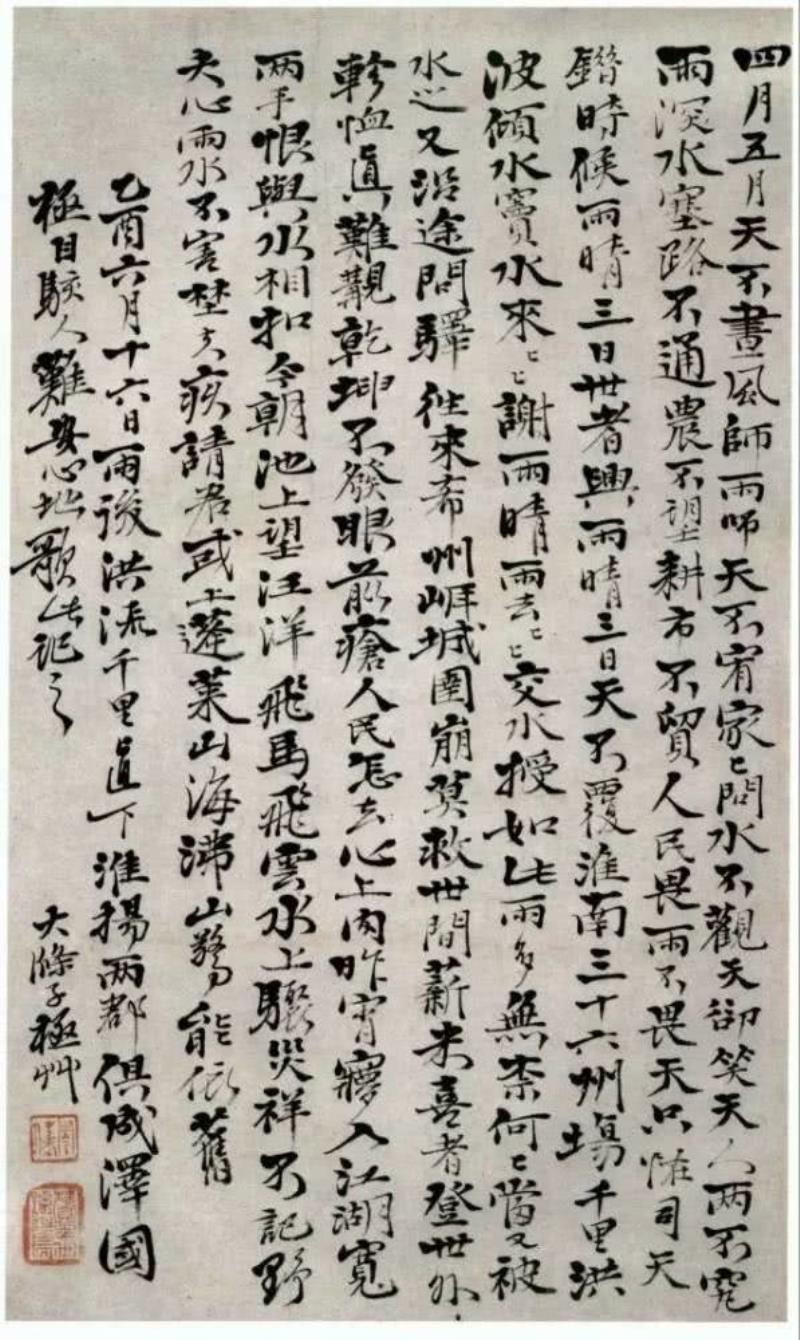 四月五月天不晝風師雨師天不宥家〻問水不觀天卻笑天人兩不究
雨深水塞路不通農不望耕市不貿人民畏雨不畏天只怪司天
錯時候雨晴三日世者興雨晴三日天不覆淮南三十六州場千里洪
波傾水竇水來〻謝雨晴雨去〻交水授如此雨多無柰何〻當又被
水之又沿途問驛往來希州崕城圍崩莫救世間薪米喜者登世外
軫恤真難觀乾坤不發眼前瘡人民怎去心上肉昨宵寢入江湖寬
兩手恨與水相扣今朝池上望汪洋飛馬飛雲水上驟災祥不記野
夫心雨水不害埜夫疚請君或上蓬萊山海沸山驚能依舊
乙酉六月十六日雨後洪流千里直下淮揚兩郡俱成澤國
極目駭人難安心地歌此記之
大滌子極艸